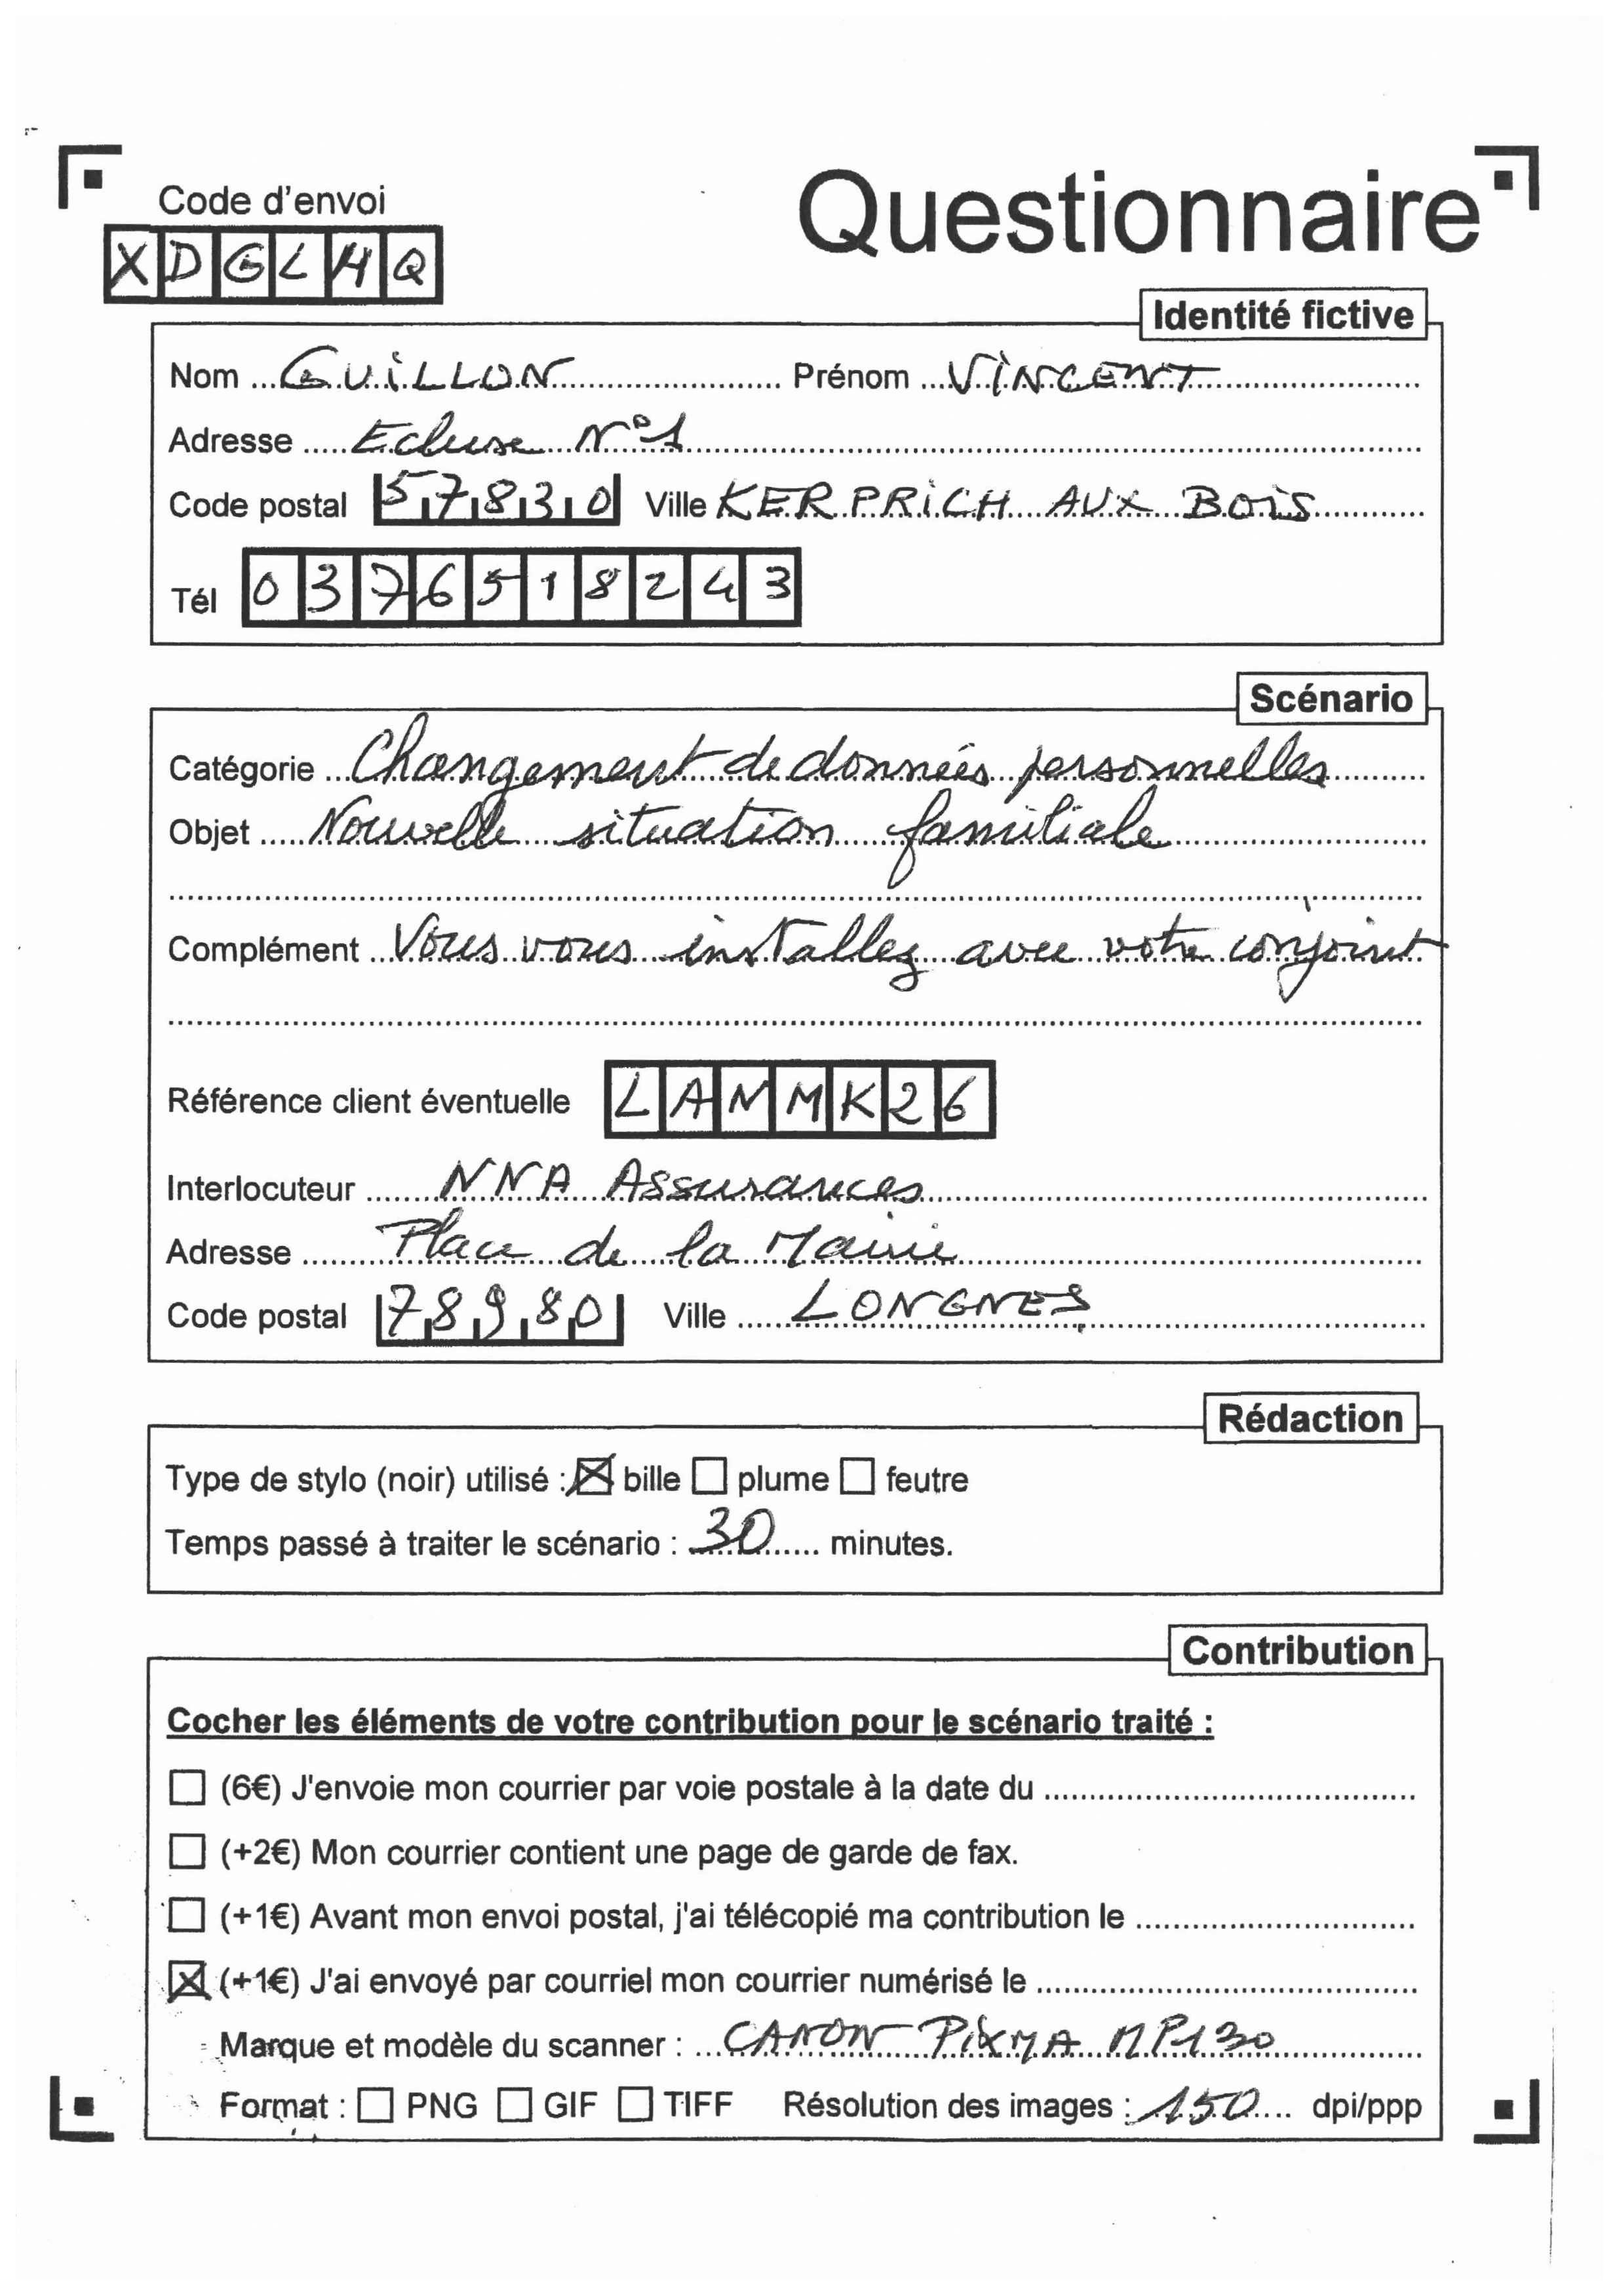 Code d'envoi
Questionnaire
XDGLHQ
Identité fictive
Nom GUILLON Prénom VINCENT
Adresse Ecluse N°1
Code postal 57830 Ville KERPRICH AUX BOIS
Tél 0376518243
Scénario
Catégorie Changement de données personnelles
Objet Nouvelle situation familiale
Complément Vous vous installez avec votre conjoint
Référence client éventuelle LANMK26
Interlocuteur NNA Assurances
Adresse Place de la Mairie
Code postal 78980 Ville LONGNES
Rédaction
Type de stylo (noir) utilisé : ☒ bille ☐ plume ☐ feutre
Temps passé à traiter le scénario : 30 minutes.
Contribution
Cocher les éléments de votre contribution pour le scénario traité :
☐ (6€) J'envoie mon courrier par voie postale à la date du
☐ (+2€) Mon courrier contient une page de garde de fax.
☐ (+1€) Avant mon envoi postal, j'ai télécopié ma contribution le
☒ (+1€) J'ai envoyé par courriel mon courrier numérisé le
Marque et modèle du scanner : CANON PIXMA MP130
Format : ☐ PNG ☐ GIF ☐ TIFF Résolution des images : 150 dpi/ppp